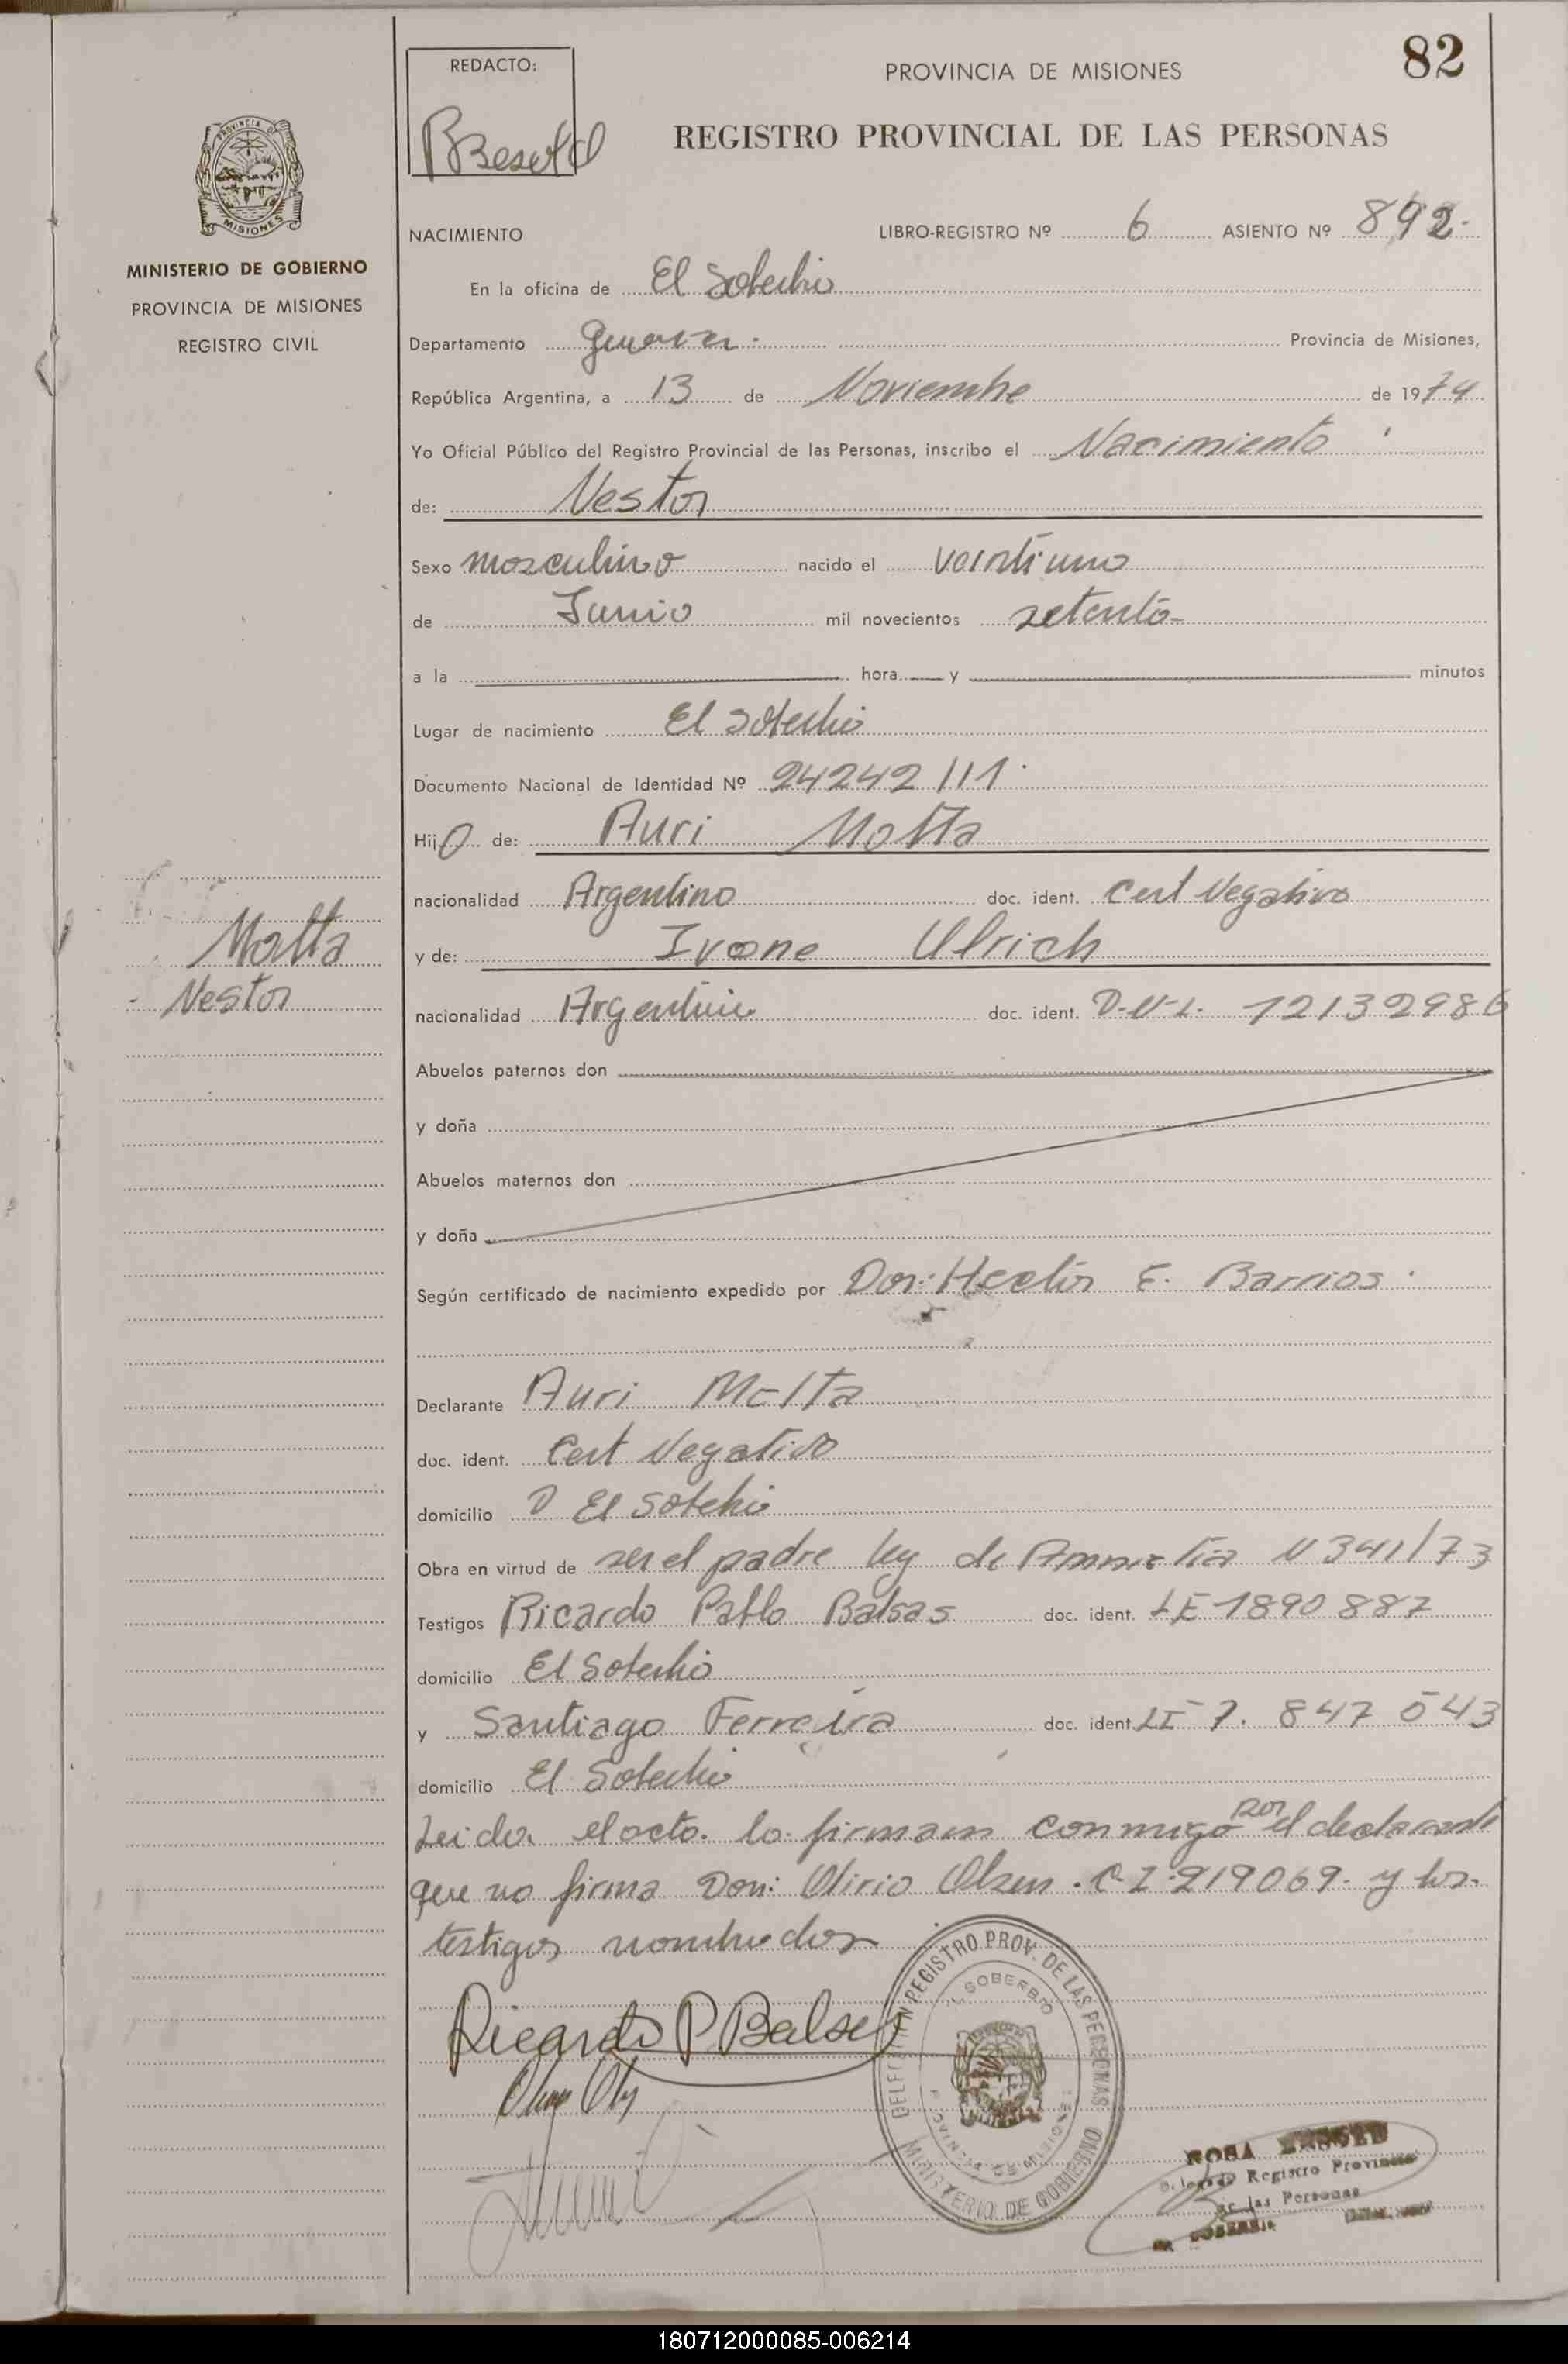 82
REDACTO:
PROVINCIA DE MISIONES
REGISTRO PROVINCIAL DE LAS PERSONAS
PROVINCIA DE
MISIONES
MINISTERIO DE GOBIERNO
PROVINCIA DE MISIONES
REGISTRO CIVIL
NACIMIENTO LIBRO-REGISTRO Nº 6 ASIENTO Nº 892.
En la oficina de El Soberbio
Departamento Guarani. Provincia de Misiones,
República Argentina, a 13 de Noviembre de 1974
Yo Oficial Público del Registro Provincial de las Personas, inscribo el Nacimiento
de: Nestor
Sexo masculino nacido el veintiuno
de Junio mil novecientos setenta-
a la hora y minutos
Lugar de nacimiento El Soberbio
Documento Nacional de Identidad Nº 24242111.
Hijo de: Auri Motta
nacionalidad Argentino doc. ident. Cert Negativo
y de: Ivone Ulrich
Motta
Nestor
nacionalidad Argentina doc. ident. D.N.I. 12132986
Abuelos paternos don
y doña
Abuelos maternos don
y doña
Según certificado de nacimiento expedido por Don: Hector E. Barrios.
Declarante Auri Motta
doc. ident. Cert Negativo
domicilio El Soberbio
Obra en virtud de ser el padre ley de Amnistia N 341/73
Testigos Ricardo Pablo Balsas doc. ident. LE 1890 887
domicilio El Soberbio
y Santiago Ferreira doc. ident. 7. 847 543
domicilio El Soberbio
Leida el acta. la firman conmigo por el declarante
que no firma Don: Olirio Olsen. C.I. 219069. y los
testigos nombrados
Ricardo P Balsas
DELEGACION REGISTRO PROV. DE LAS PERSONAS
EL SOBERBIO
PROVINCIA DE MISIONES
MINISTERIO DE GOBIERNO
ROSA
Delegado Registro Provincial
de las Personas
EL SOBERBIO
180712000085-006214